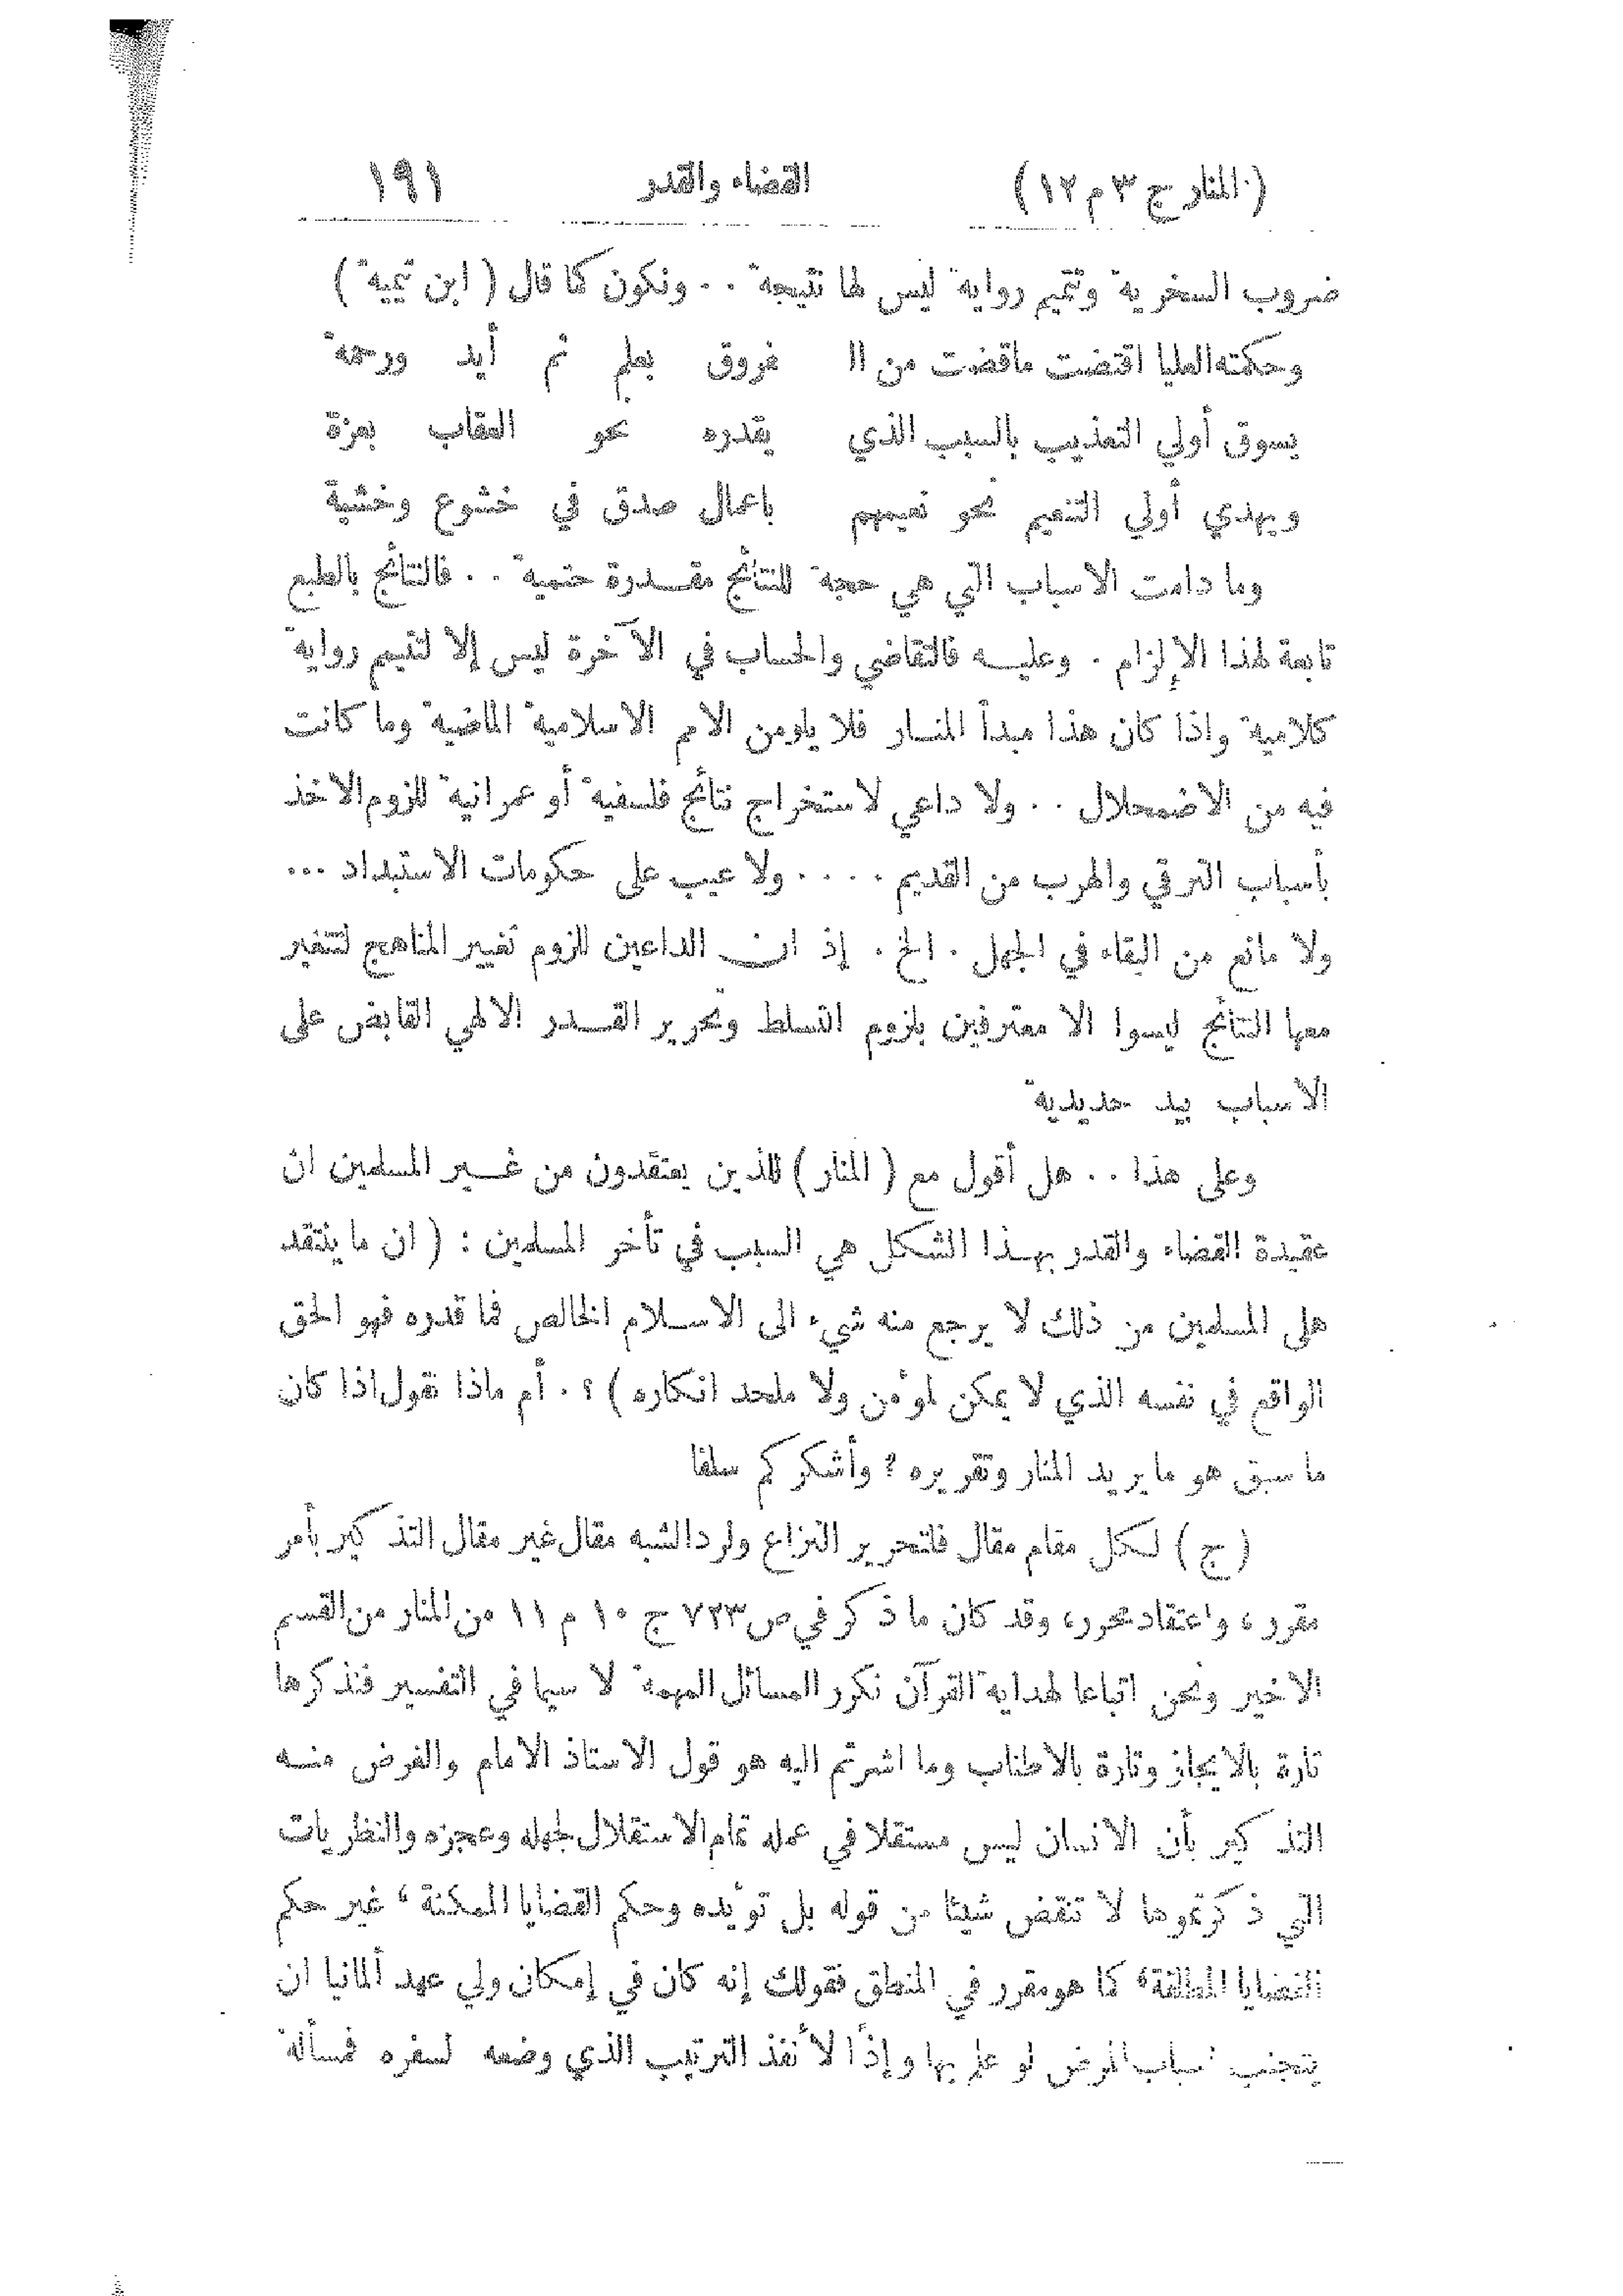 (المنار ج ٣ م ١٢) القضاء والقدر ١٩١
ضروب السخرية وتتميم رواية ليس لها نتيجة . . ونكون كما قال ( ابن تيمية )
وحكمته العليا اقتضت ماقضت من الـ فروق بعلم ثم أيد ورحمة
يسوق أولي التعذيب بالسبب الذي يقدره نحو العقاب بعزة
ويهدي أولي التنعيم نحو نعيمهم باعمال صدق في خشوع وخشية
وما دامت الاسباب التي هي حجة للنتائج مقدرة حتمية . . فالنتائج بالطبع
تابعة لهذا الإلزام . وعليه فالتقاضي والحساب في الآخرة ليس إلا لتتميم رواية
كلامية واذا كان هذا مبدأ المنار فلا يلومن الامم الاسلامية الماضية وما كانت
فيه من الاضمحلال . . ولا داعي لاستخراج نتائج فلسفية أو عمرانية للزوم الاخذ
بأسباب الترقي والهرب من القديم . . . . ولا عيب على حكومات الاستبداد ...
ولا مانع من البقاء في الجهل . الخ . إذ ان الداعين للزوم تغيير المناهج لتتغير
معها النتائج ليسوا الا معترفين بلزوم التسلط وتحرير القدر الالهي القابض على
الاسباب بيد حديدية
وعلى هذا . . هل أقول مع ( المنار ) للذين يعتقدون من غير المسلمين ان
عقيدة القضاء والقدر بهذا الشكل هي السبب في تأخر المسلمين : ( ان ما ينتقد
على المسلمين من ذلك لا يرجع منه شيء الى الاسلام الخالص فما قدره فهو الحق
الواقع في نفسه الذي لا يمكن لمؤمن ولا ملحد انكاره ) ؟ . أم ماذا نقول اذا كان
ما سبق هو ما يريد المنار وتقريره ؟ وأشكركم سلفا
( ج ) لكل مقام مقال فلتحرير النزاع ولرد الشبه مقال غير مقال التذكير بأمر
مقرر، واعتقاد محرر، وقد كان ما ذكر في ص ٧٢٣ ج ١٠ م ١١ من المنار من القسم
الاخير ونحن اتباعا لهداية القرآن نكرر المسائل المهمة لا سيما في التفسير فنذكرها
تارة بالايجاز وتارة بالاطناب وما اشرتم اليه هو قول الاستاذ الامام والغرض منه
التذكير بأن الانسان ليس مستقلا في عمله تمام الاستقلال لجهله وعجزه والنظريات
التي ذكرتموها لا تنقض شيئا من قوله بل تؤيده وحكم القضايا الممكنة، غير حكم
القضايا المطلقة، كما هو مقرر في المنطق فقولك إنه كان في إمكان ولي عهد ألمانيا ان
يتجنب اسباب المرض لو علم بها وإذًا لأنفذ الترتيب الذي وضعه لسفره فمسألة